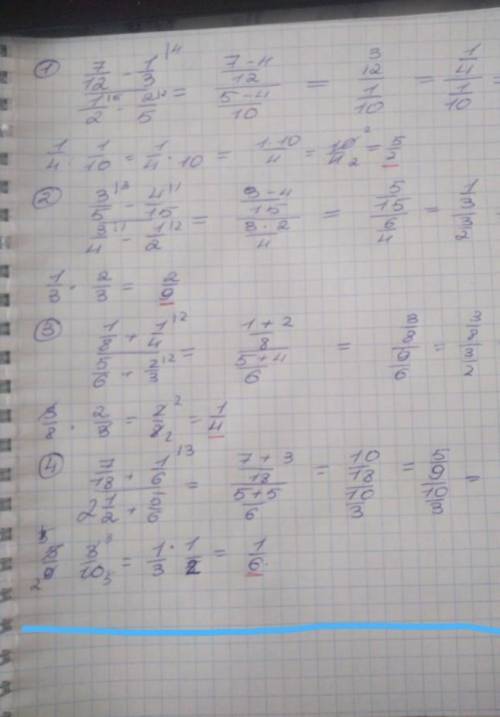 ① 7/12 - 1/3 |4 / 1/2 |5 - 2/5 |2 = (7-4)/12 / (5-4)/10 = 3/12 / 1/10 = 1/4 / 1/10 =
1/4 : 1/10 = 1/4 · 10 = 1·10/4 = 10/4 = 5/2
② 3/5 |3 - 4/15 |1 / 3/4 |1 - 1/2 |2 = (9-4)/15 / (3·2)/4 = 5/15 / 6/4 = 1/3 / 3/2
1/3 · 2/3 = 2/9
③ 1/8 + 1/4 |2 / 5/6 + 2/3 |2 = (1+2)/8 / (5+4)/6 = 3/8 / 9/6 = 3/8 / 3/2
3/8 · 2/3 = 2/8 = 1/4
④ 7/18 + 1/6 |3 / 2 1/2 + 5/6 = (7+3)/18 / (5+5)/6 = 10/18 / 10/3 = 5/9 / 10/3 =
5/9 · 3/10 = 1/3 · 1/2 = 1/6